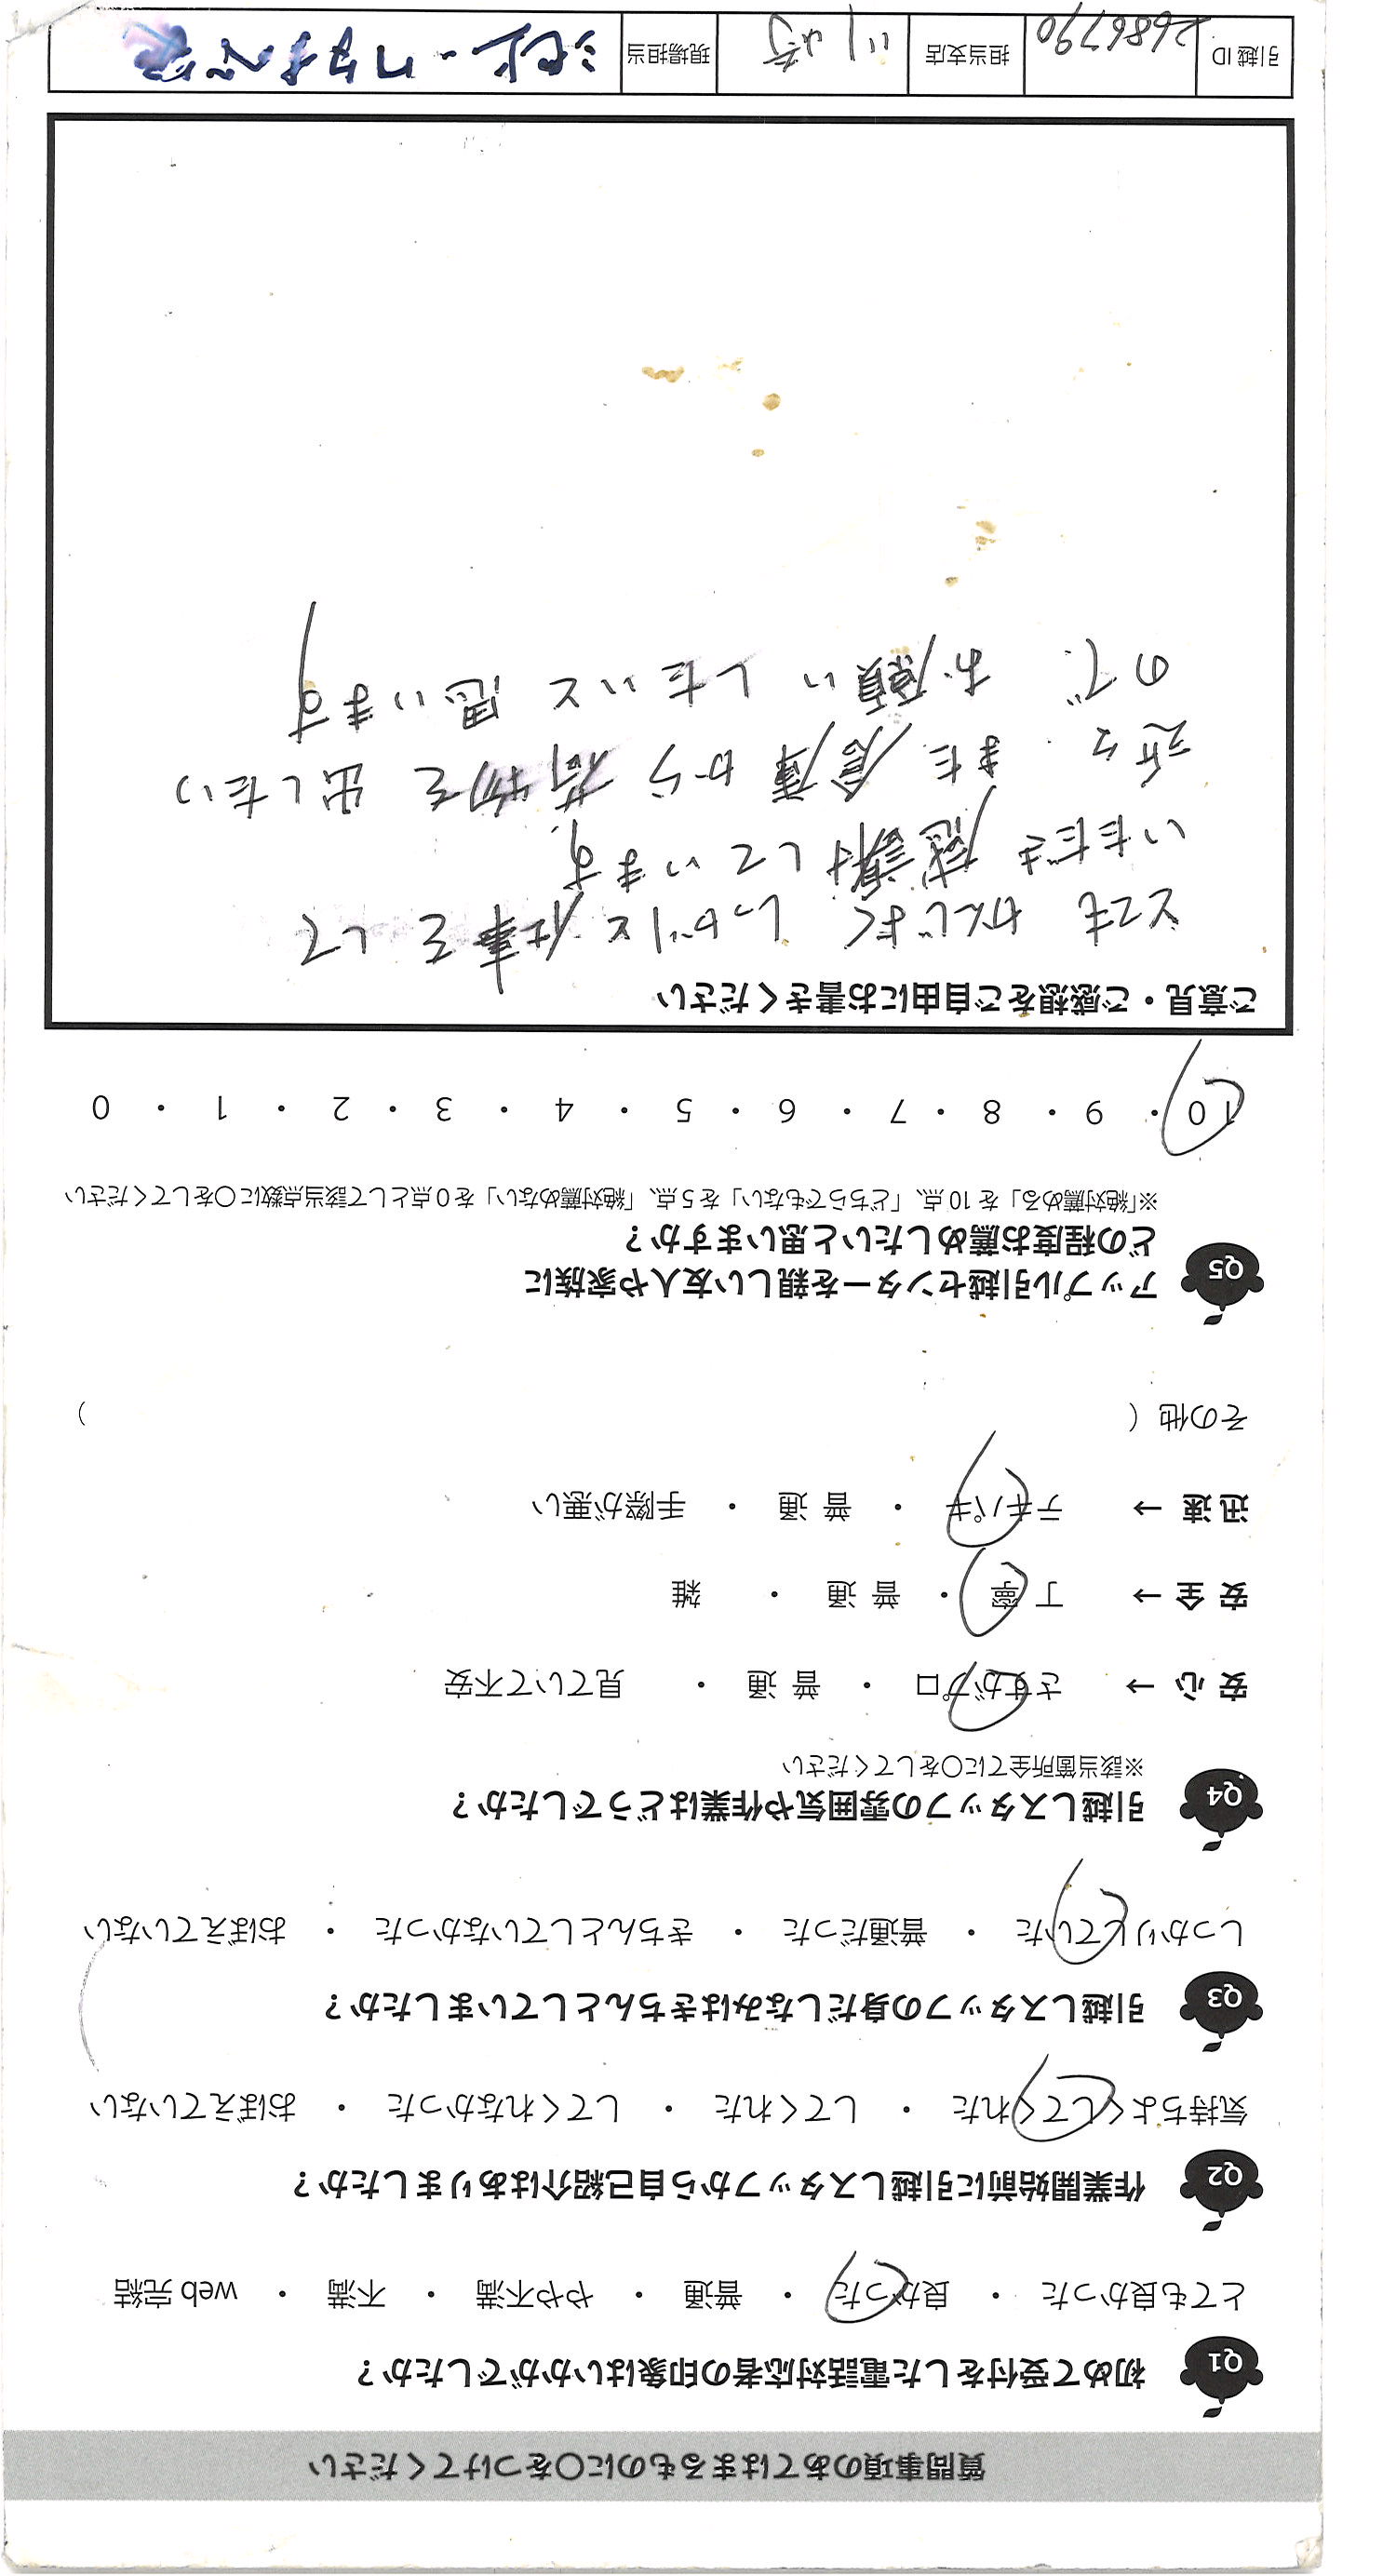 質問事項のあてはまるものに〇をつけてください
Q1 初めて受付をした電話対応者の印象はいかがでしたか？
とても良かった ・ 良かった ・ 普通 ・ やや不満 ・ 不満 ・ web 完結
Q2 作業開始前に引越しスタッフから自己紹介はありましたか？
気持ちよくしてくれた ・ してくれた ・ してくれなかった ・ おぼえていない
Q3 引越しスタッフの身だしなみはきちんとしていましたか？
しっかりしていた ・ 普通だった ・ きちんとしていなかった ・ おぼえていない
Q4 引越しスタッフの雰囲気や作業はどうでしたか？
※該当箇所全てに〇をしてください
安 心 → さすがプロ ・ 普 通 ・ 見ていて不安
安 全 → 丁 寧 ・ 普 通 ・ 雑
迅 速 → テキパキ ・ 普 通 ・ 手際が悪い
その他（ ）
Q5 アップル引越センターを親しい友人や家族に
どの程度お薦めしたいと思いますか？
※「絶対薦める」を 10 点、「どちらでもない」を 5 点、「絶対薦めない」を 0 点として該当点数に〇をしてください
10 ・ 9 ・ 8 ・ 7 ・ 6 ・ 5 ・ 4 ・ 3 ・ 2 ・ 1 ・ 0
ご意見・ご感想をご自由にお書きください
とても かんじよく しっかりと 仕事を して
いただき 感謝 しています。
近々 また 倉庫から 荷物を 出したい
ので お願い したいと 思います
引越 ID 2686790 担当支店 川崎 現場担当